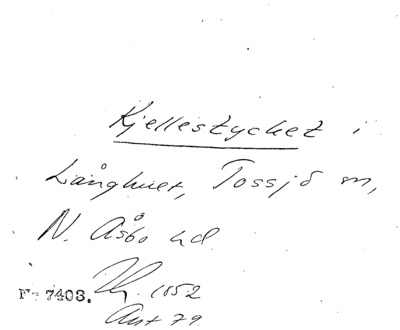 Kjellestycket i
Långhult, Tossjö m,
N. Åsbo hd
F: 7403. 1852
Ant 79